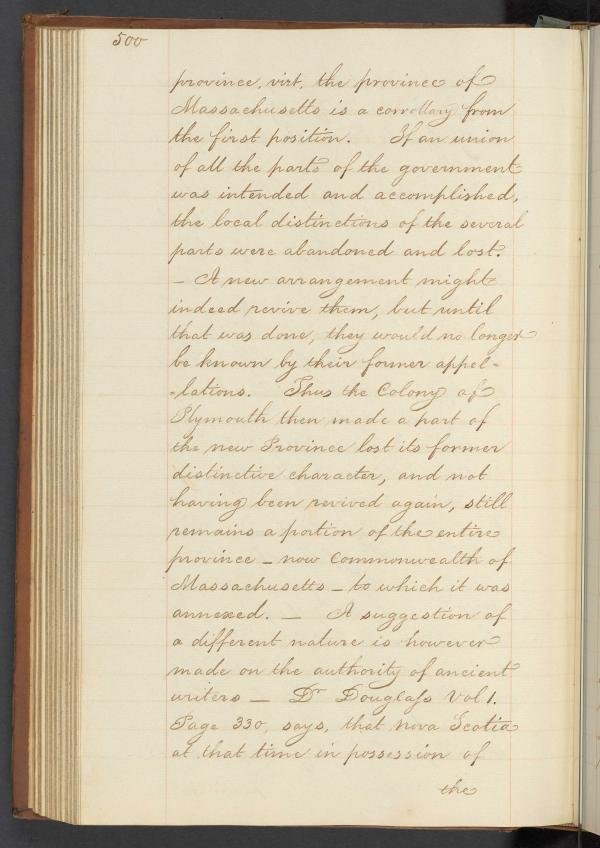 500
province, virt, the province of
Massachusetts is a corrollary from
the first position. If an union
of all the parts of the government
was intended and accomplished,
the local distinctions of the several
parts were abandoned and lost.
- A new arrangement might
indeed revive them, but until
that was done, they would no longer
be known by their former appel-
-lations. Thus the Colony of
Plymouth then made a part of
the new Province lost its former
distinctive character, and not
having been revived again, still
remains a portion of the entire
province - now Commonwealth of
Massachusetts - to which it was
annexed. — A suggestion of
a different nature is however
made on the authority of ancient
writers — Dr Douglass Vol 1.
Page 330, says, that Nova Scotia
at that time in possession of
the